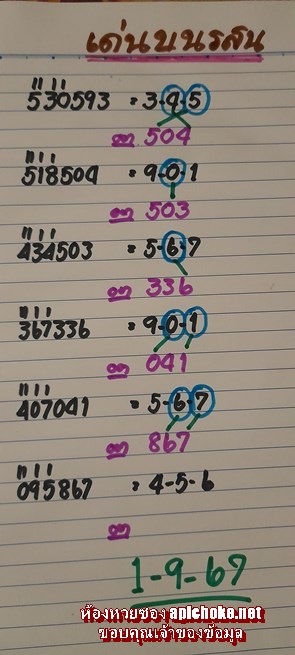 เด่นบนรสน
530593 = 3-4-5
ตย 504
518504 = 9-0-1
503
434503 = 5-6-7
336
367336 = 9-0-1
041
407041 = 5-6-7
867
095867 = 4-5-6
1-9-67
ห้องหวยซอง aplchoke.net
ขอบคุณเจ้าของข้อมูล